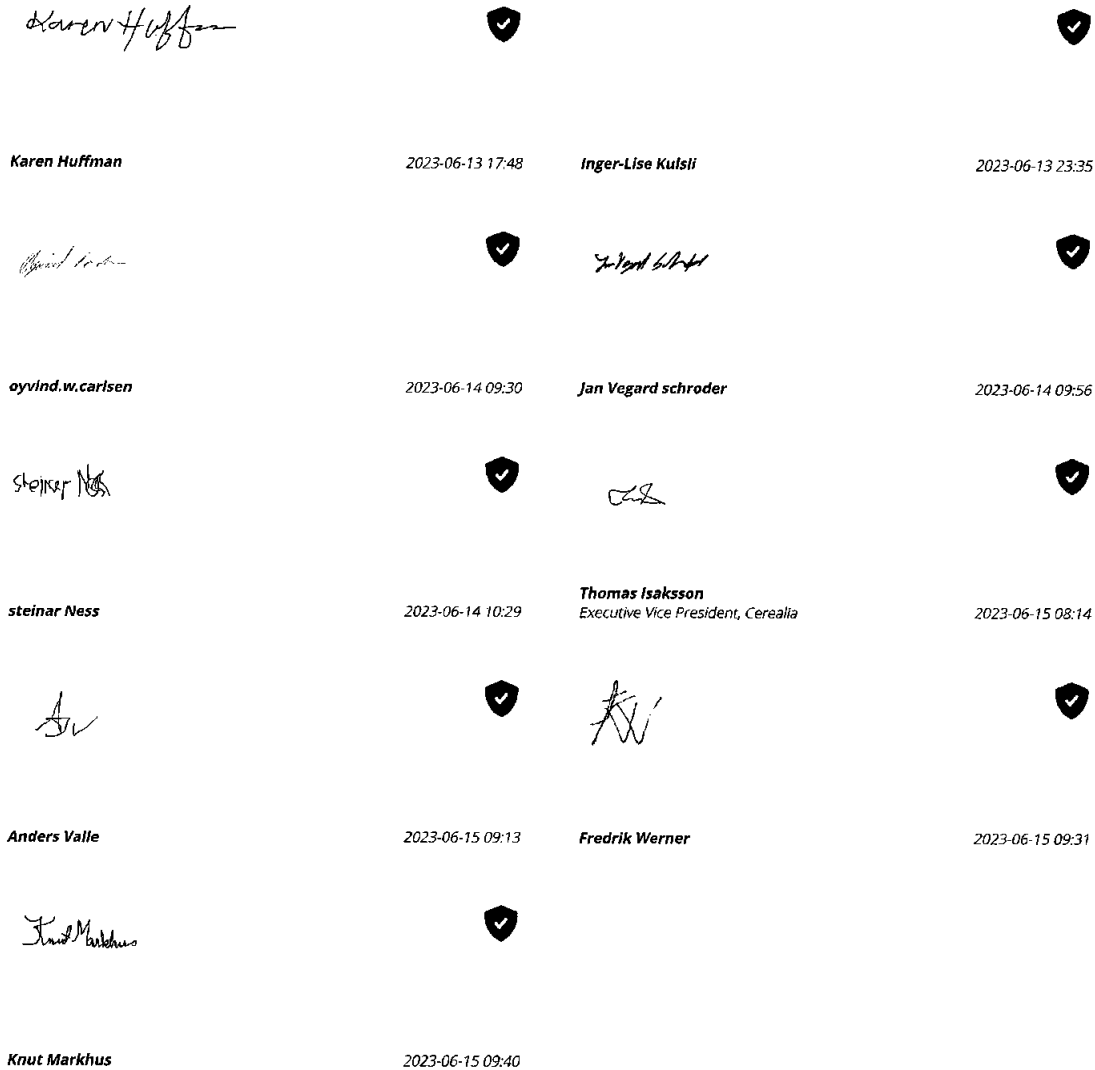 Karen Huffman
Karen Huffman 2023-06-13 17:48
Inger-Lise Kulsli 2023-06-13 23:35
øyvind.w.carlsen 2023-06-14 09:30
Jan Vegard schrøder 2023-06-14 09:56
steinar Ness
steinar Ness 2023-06-14 10:29
Thomas Isaksson
Executive Vice President, Cerealia 2023-06-15 08:14
Anders Valle 2023-06-15 09:13
Fredrik Werner 2023-06-15 09:31
Knut Markhus
Knut Markhus 2023-06-15 09:40